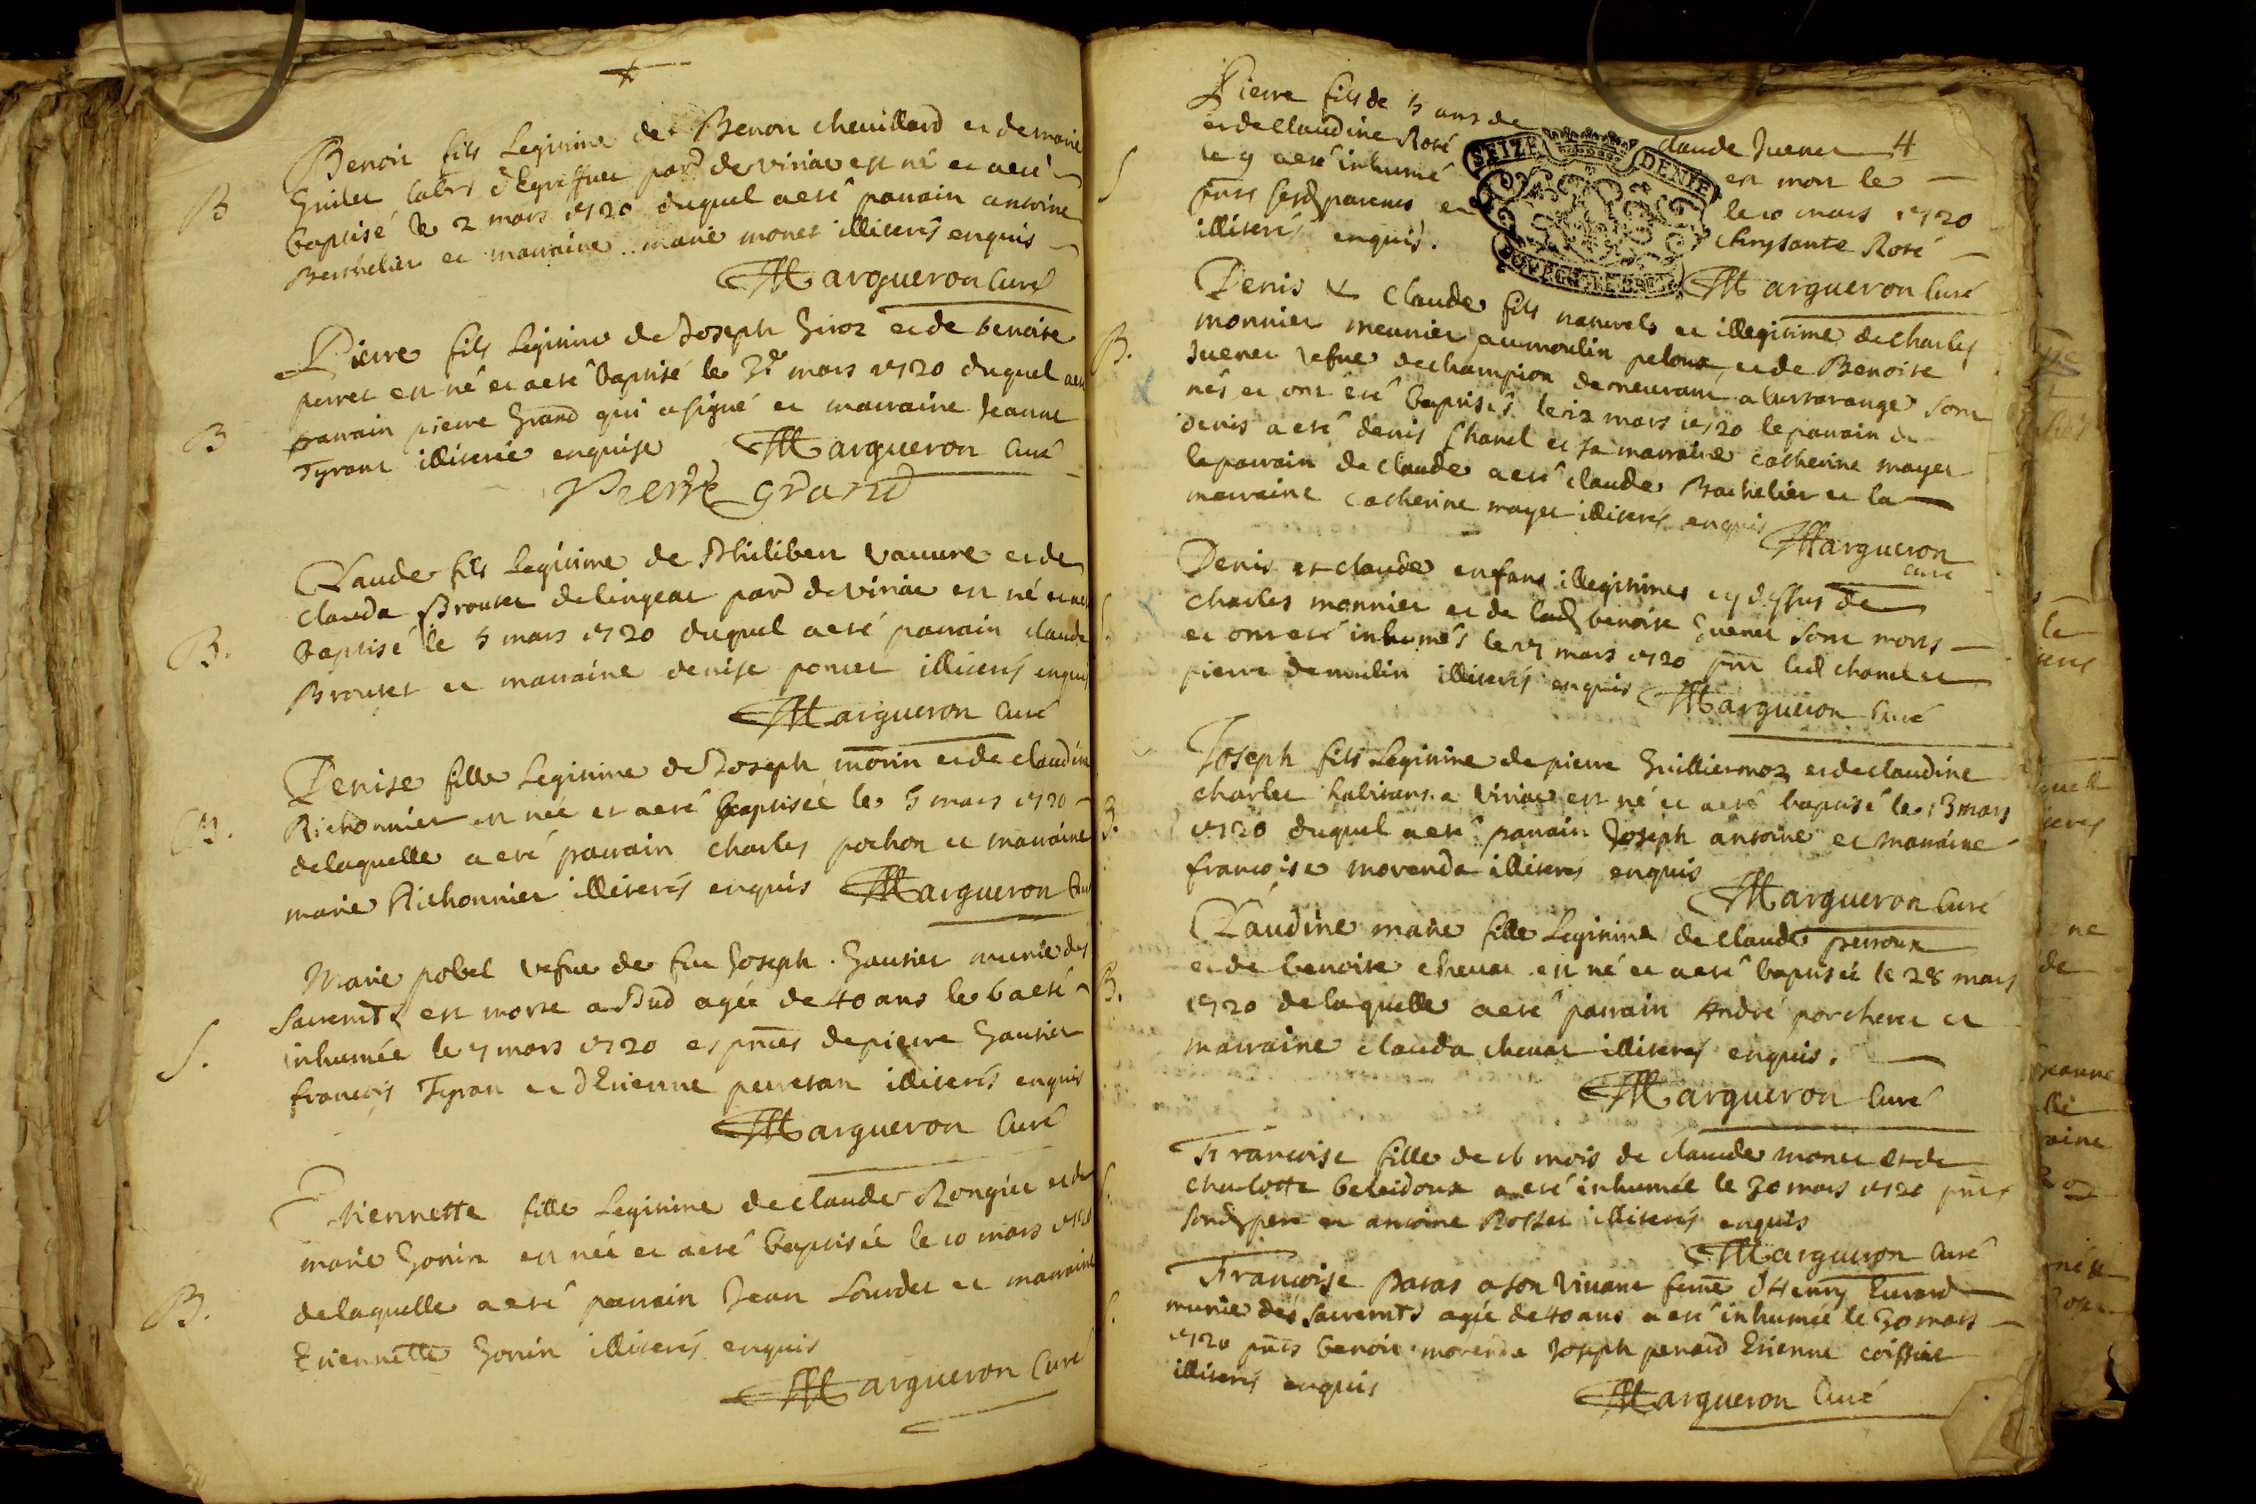 B
Benoit fils Legitime de Benoit chevillard et de marie
Guilet labrs parr de viriat est né et a eté
baptisé le 2 mars 1720 duquel a eté parrain antoine
Berthelier et marraine marie monet illiterés enquis
Margueron Curé
B
Pierre fils Legitime de Joseph Giroz et de benoite
perret est né et a eté baptisé le 3e mars 1720 duquel a eté
parrain pierre Grand qui a signé et marraine Jeanne
Tyrant illiterée enquise Margueron Curé
Pierre grand
B.
Claude fils Legitime de Philibert vavure et de
Clauda Brouset de lingeat parr de viriat est né et a eté
baptisé le 5 mars 1720 duquel a eté parrain claude
Brouset et marraine denise poncet illiterés enquis
Margueron Curé
B.
Denise fille Legitime de Joseph morin et de claudine
Richonnier est née et a eté baptisée le 5 mars 1720
de laquelle a eté parrain charles pochon et marraine
marie Richonnier illiterés enquis Margueron Curé
S.
Marie pobel vefve de feu Joseph Gautier munie des
sacremts est morte a Bud agée de 40 ans le 6 a eté
inhumée le 7 mars 1720 es pntes de pierre Gautier
francois Tyran et d'Etienne perretan illiterés enquis
Margueron Curé
B.
Etiennette fille Legitime de claude Rongier et de
marie Gonin est née et a eté baptisée le 10 mars 1720
de laquelle a eté parrain Jean Lourdet et marraine
Etiennette Gonin illiterés enquis
Margueron Curé
4
S
Pierre fils de 5 ans de claude Juenet
et de Claudine Rosé est mort le
le 9 a eté inhumé le 10 mars 1720
pnts sesd parents et chrysante Rosé
illiterés enquis.
SEIZE DENIE
Margueron Curé
B.
Denis & Claude fils naturels et illegitime de charles
monnier meunier au moulin peloux et de Benoite
Juenet vefve de champion demeurant a sont
nés et ont eté baptisés le 12 mars 1720 le parrain de
denis a eté denis Chanel et sa marraine catherine mayet
le parrain de claude a eté claude Bachelier et la
marraine catherine mayet illiterés enquis
Margueron
curé
S.
Denis et claude enfans illegitimes cy dessus de
charles monnier et de lad benoite Juenet sont morts
et ont eté inhumés le 17 mars 1720 pnt led chanel et
pierre demoulin illiterés enquis Margueron Curé
B.
Joseph fils Legitime de pierre Guilliermoz et de claudine
charlet habitans a viriat est né et a eté baptisé le 13 mars
1720 duquel a eté parrain Joseph antoine et marraine
francoise morenda illiterés enquis
Margueron Curé
B.
Claudine marie fille Legitime de claude perroux
et de benoite chevat est né et a eté baptisée le 28 mars
1720 de laquelle a eté parrain André porcheret et
marraine clauda chevat illiterés enquis.
Margueron Curé
S.
Francoise fille de 16 mois de claude monet et de
charlotte beleidoux a eté inhumée le 30 mars 1720 pnts
sond pere et antoine Rosset illiterés enquis
Margueron Curé
S.
Francoise Baras a son vivant feme d'Henry Evrard
munie des sacremts agée de 40 ans a eté inhumée le 30 mars
1720 pnts benoit morenda Joseph penard Etienne coissiat
illiterés enquis
Margueron Curé